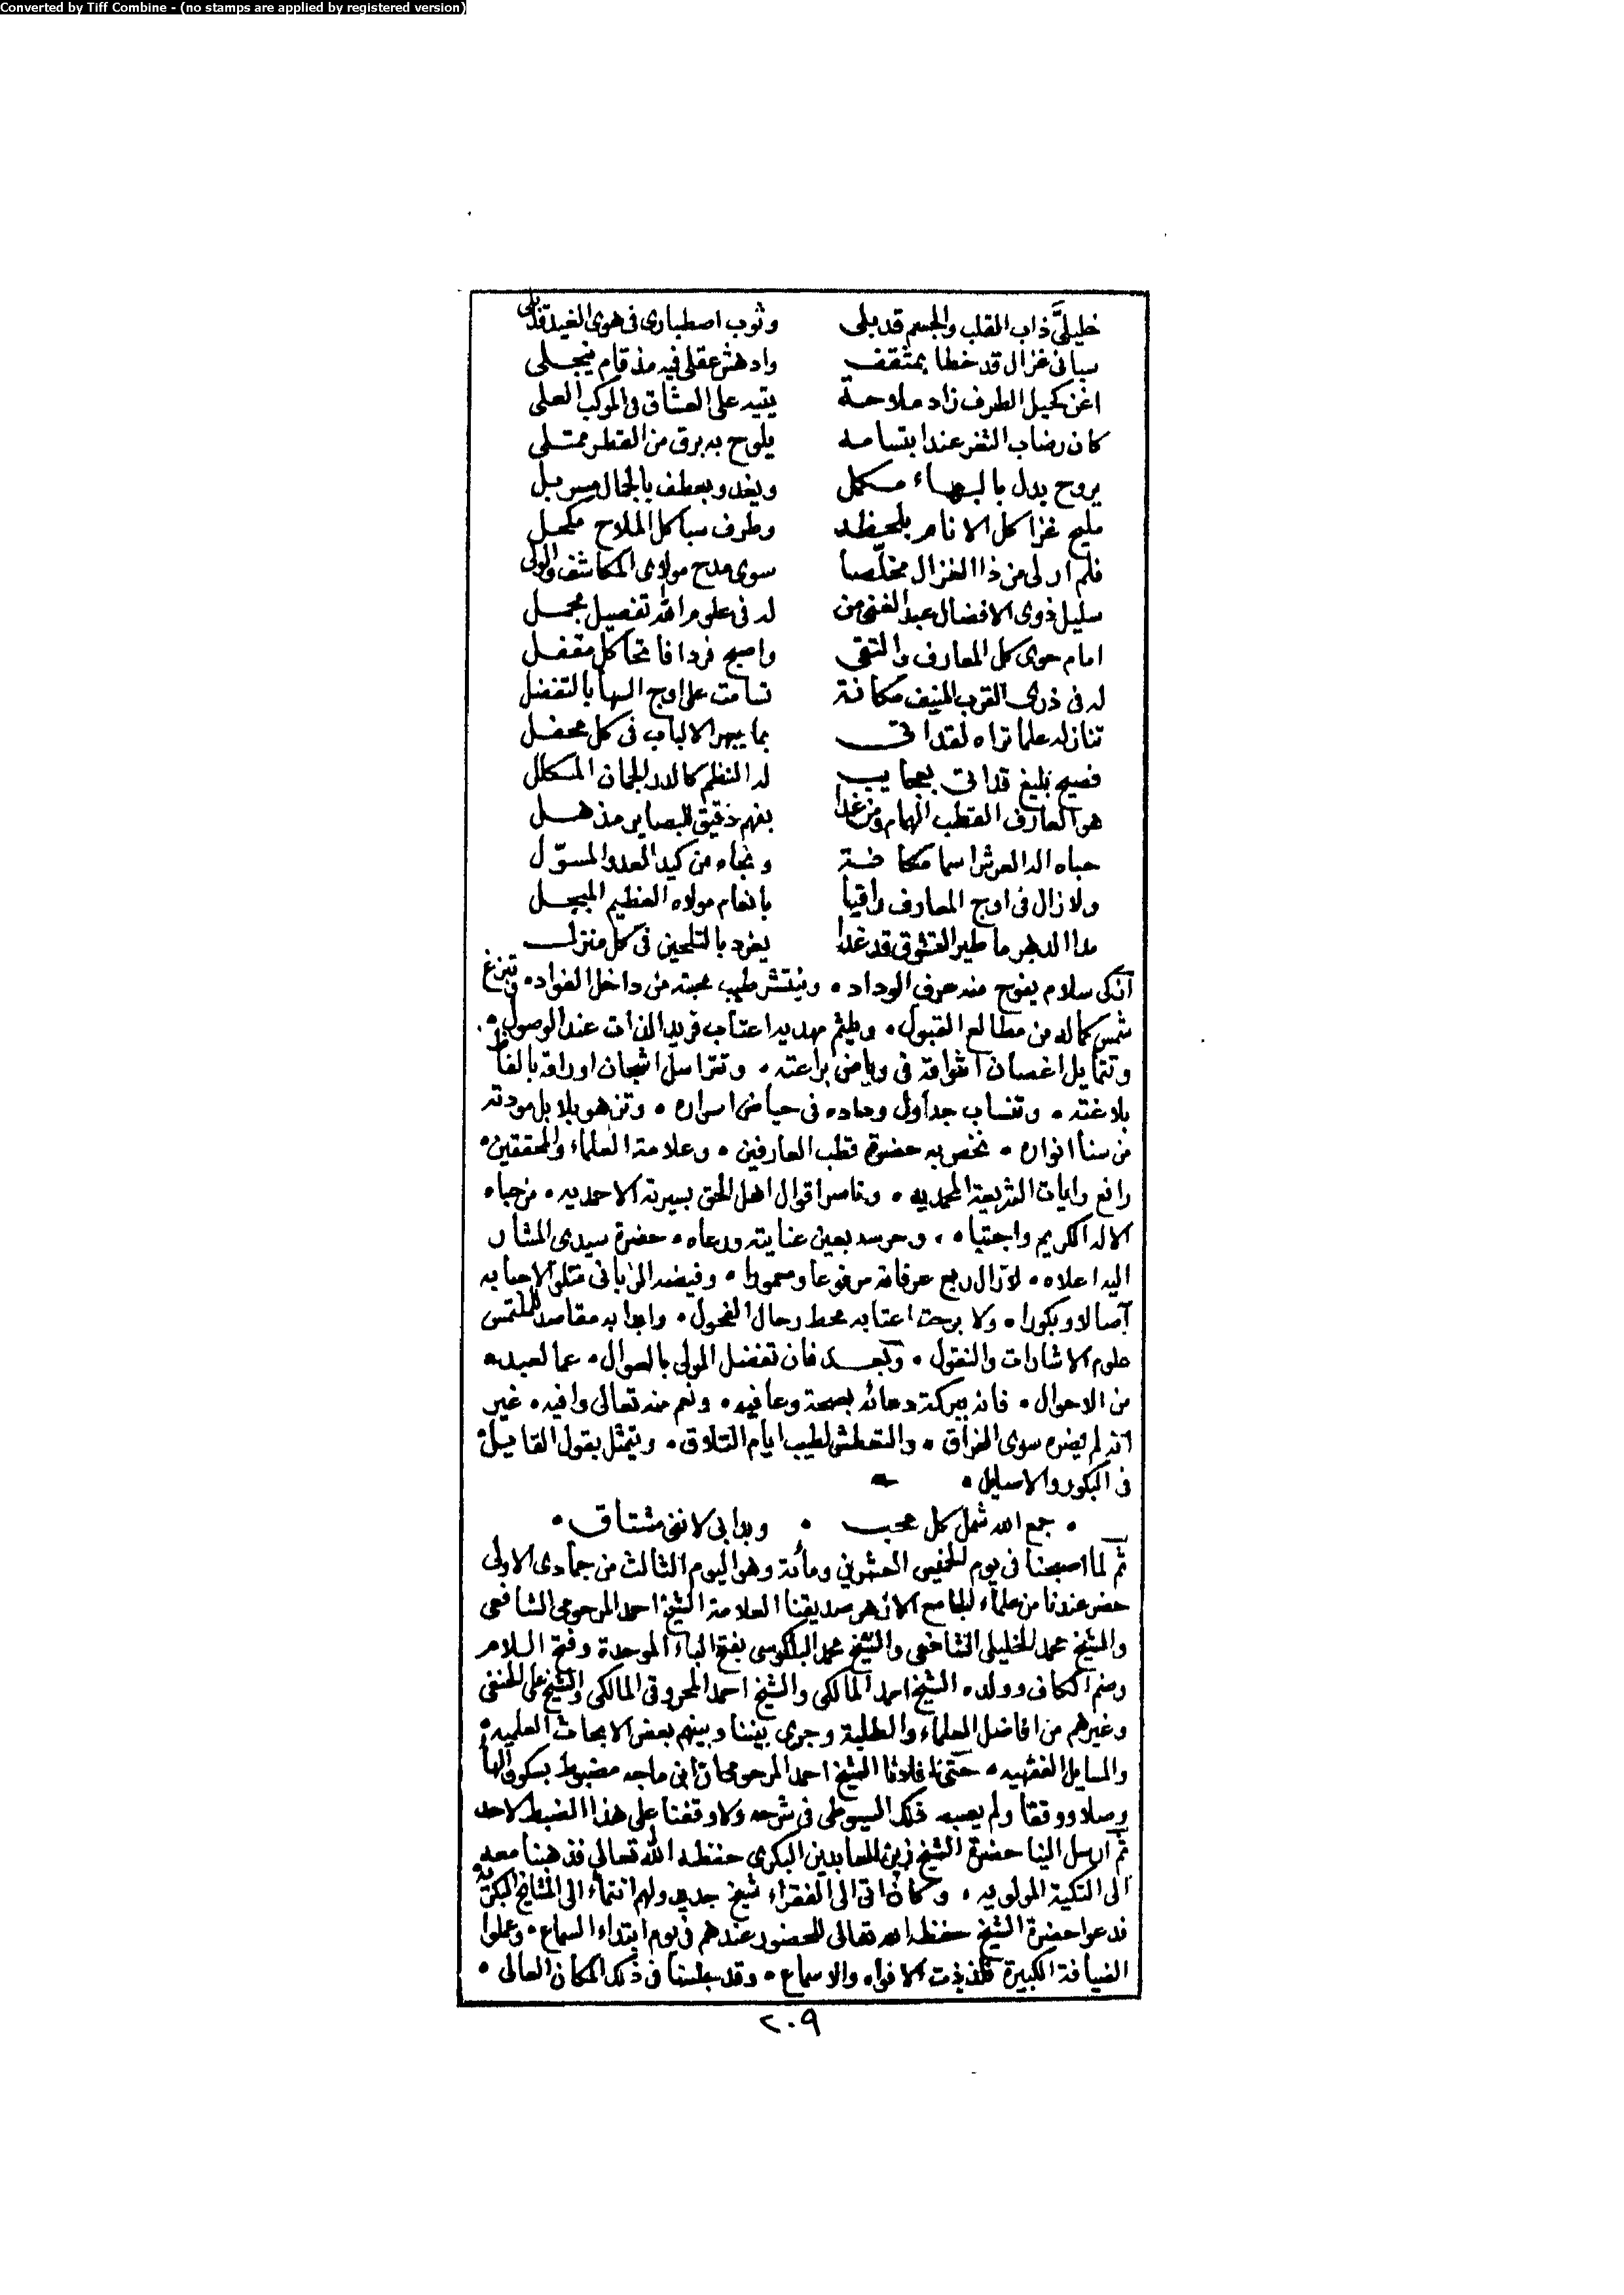 Converted by Tiff Combine - (no stamps are applied by registered version)
خليليَّ ذاب القلب والجسم قد بلى وثوب اصطبارى فى هوى الغيد قد بلى
سبانى غزال قد خطا بمثقف وادهش عقلى فيه مذ قام ينجلى
اغن كحيل الطرف زاد ملاحة يتيه على العشاق فى الموكب العلى
كان رضاب الثغر عند ابتسامه يلوح به برق من القطر ممتلى
يروح بدل بالبهاء مكمل ويغدو بعطف بالجمال مسربل
مليح غزا كل الانام بلحظه وطرف سبا كل الملاح مكحل
فلم ار لى من ذا الغزال مخلّصا سوى مدح مولاى المكاشف والولى
سليل ذوى الافضال عبد الغنى من له فى علوم الله تفصيل مجمل
امام حوى كل المعارف والتقى واصبح فردا فاتحا كل مقفل
له فى ذرى القرب المنيف مكانة تسامت على اوج السها بالتفضل
تنازله علما تراه لقد اتى بما يبهر الالباب فى كل محفل
فصيح بليغ قد اتى بعجايب له النظم كالدر الجمان المكلل
هو العارف القطب الهمام ومن غدا بفهم دقيق للبصاير مذهل
حباه اله العرش اسما مكانة ونجاه من كيد العدو المسوّل
ولا زال فى اوج المعارف راقيا بانعام مولاه العظيم المبجل
مدا الدهر ما طير التشوق قد غدا يغرد بالتلحين فى كل منزل
ازكى سلام يفوح منه عرف الوداد • وينتشر طيب محبته من داخل الفواد • وتبزغ
شمس كماله من مطالع القبول • ويلثم مهديه اعتاب فريد الذات عند الوصول •
وتتمايل اغصان اشواقه فى رياض براعته • وتتراسل اشجان اوراقه بالفاظ
بلاغته • وتنساب جداول وداده فى حياض اسراره • وتزهو بلابل مودته
من سنا انواره • نخص به حضرة قطب العارفين • وعلامة العلماء والمحققين •
رافع رايات الشريعة المحمديه • وناصر اقوال اهل الحق بسيرته الاحمديه • من حباه
الاله الكريم واجتباه • وحرسه بعين عنايته ورعاه • حضرة سيدى المشار
اليه اعلاه • لا زال ربع عرفانه مرفوعا ومعمورا • وفيضه الربانى متلو الاحبابه
آصالا وبكورا • ولا برحت اعتابه محط رحال الفحول • وابوابه مقاصد الملتمس
علوم الاشارات والنقول • وبعد فان تفضل المولى بالسوال • عما لعبده
من الاحوال • فانه ببركة دعائه بصحة وعافيه • ونعم منه تعالى وافيه • غير
انه لم يضره سوى الفراق • والتعطش لطيب ايام التلاق • ويتمثل بقول القائيل
فى البكور والاصايل •
• جمع الله شمل كل محب • وبدا بى لاننى مشتاق •
ثم لما اصبحنا فى يوم الخميس العشرين ومأئة وهو اليوم الثالث من جمادى الاولى
حضر عندنا من علماء الجامع الازهر صديقنا العلامة الشيخ احمد المرحومى الشافعى
والشيخ محمد الخليلى الشافعى والشيخ محمد البلكوسى بفتح الباء الموحدة وفتح اللام
وضم الكاف وولده الشيخ احمد المالكى والشيخ احمد المحروقى المالكى والشيخ على الحنفى
وغيرهم من افاضل العلماء والطلبة وجرى بيننا وبينهم بعض الابحاث العلميه •
والمسايل الفقهيه • حتى افادنا الشيخ احمد المرحومى ان ابن ماجه مضبوط بسكون الها
وصلا ووقفا ولم يصبه ذلك السيوطى فى شرحه ولا وقفنا على هذا الضبط لاحد
ثم ارسل الينا حضرة الشيخ زين العابدين البكرى حفظه الله تعالى فذهبنا معه
الى التكية المولويه • وكان اتى الى الفقراء شيخ جديد ولهم انتماء الى المشايخ البكريه
فدعوا حضرة الشيخ حفظه الله تعالى للحضور عندهم فى يوم ابتداء السماع • وعملوا
الضيافة الكبيرة فلذذت الافواه والاسماع • وقد جلسنا فى ذلك المكان العالى •
٢٠٩